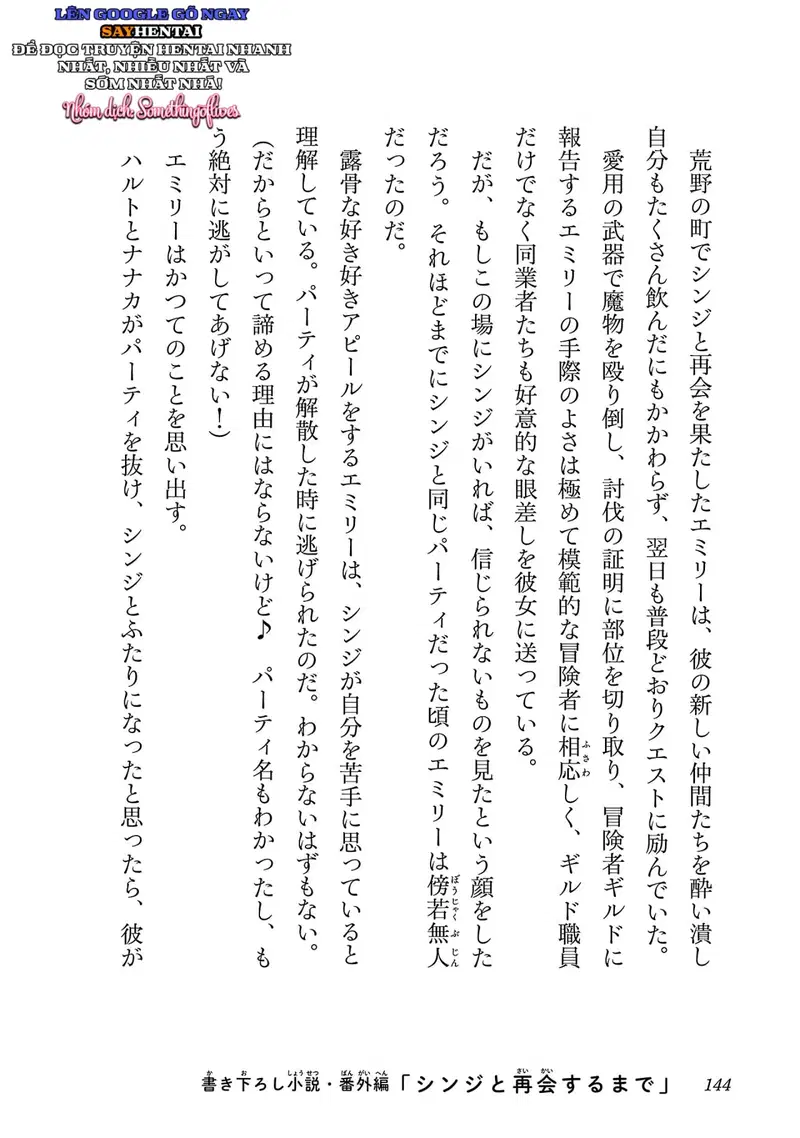 LÊN GOOGLE GÕ NGAY
SAYHENTAI
ĐỂ ĐỌC TRUYỆN HENTAI NHANH
NHẤT, NHIỀU NHẤT VÀ
SỚM NHẤT NHÁ!
Nhóm dịch: Somethingofwes
荒野の町でシンジと再会を果たしたエミリーは、彼の新しい仲間たちを酔い潰し
自分もたくさん飲んだにもかかわらず、翌日も普段どおりクエストに励んでいた。
愛用の武器で魔物を殴り倒し、討伐の証明に部位を切り取り、冒険者ギルドに
報告するエミリーの手際のよさは極めて模範的な冒険者に相応しく、ギルド職員
ふさわ
だけでなく同業者たちも好意的な眼差しを彼女に送っている。
だが、もしこの場にシンジがいれば、信じられないものを見たという顔をした
だろう。それほどまでにシンジと同じパーティだった頃のエミリーは傍若無人
ぼうじゃくぶじん
だったのだ。
露骨な好き好きアピールをするエミリーは、シンジが自分を苦手に思っていると
理解している。パーティが解散した時に逃げられたのだ。わからないはずもない。
(だからといって諦める理由にはならないけど♪　パーティ名もわかったし、も
う絶対に逃がしてあげない!)
エミリーはかつてのことを思い出す。
ハルトとナナカがパーティを抜け、シンジとふたりになったと思ったら、彼が
か お しょうせつ ばんがいへん さいかい
書き下ろし小説・番外編「シンジと再会するまで」 144